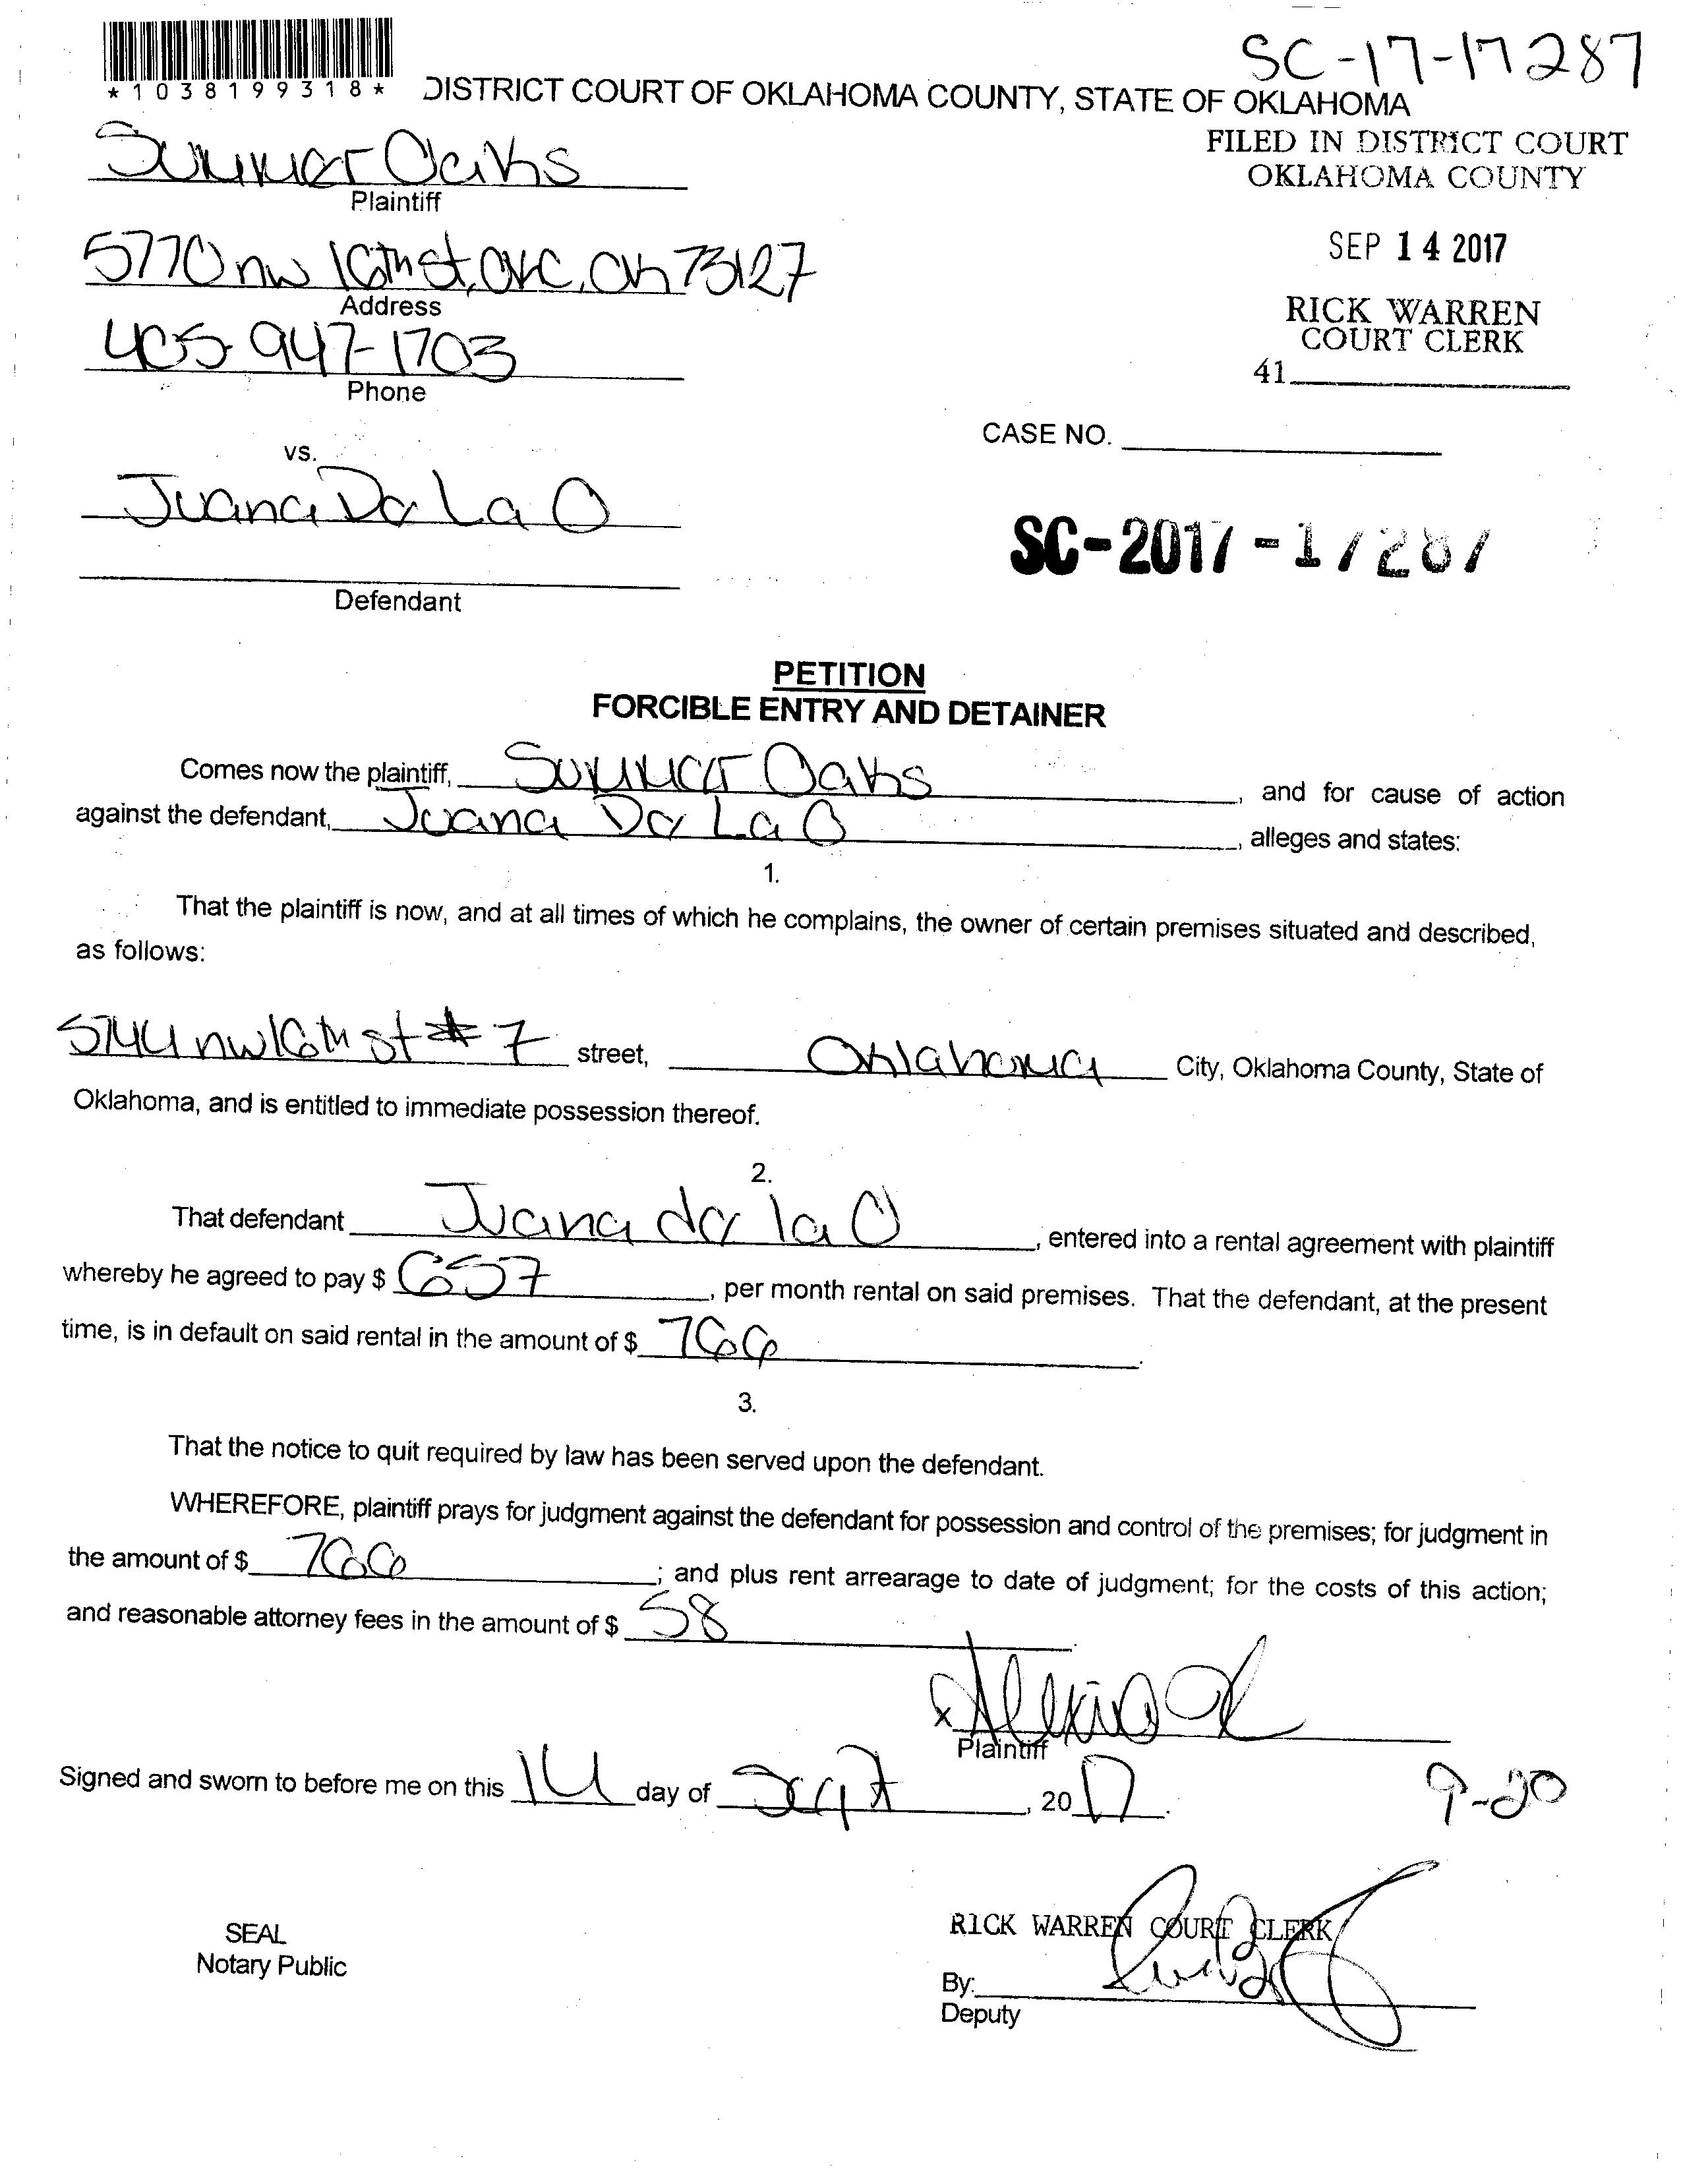 SC-17-17287
*1038199318*
DISTRICT COURT OF OKLAHOMA COUNTY, STATE OF OKLAHOMA
FILED IN DISTRICT COURT
OKLAHOMA COUNTY
Summer Oaks
Plaintiff
SEP 14 2017
5770 nw 16th st, OKC, Ok 73127
Address
RICK WARREN
COURT CLERK
405-947-1703
Phone
41
CASE NO.
vs.
Juana De La O
SC-2017-17287
Defendant
PETITION
FORCIBLE ENTRY AND DETAINER
Comes now the plaintiff, Summer Oaks, and for cause of action
against the defendant, Juana De La O, alleges and states:
1.
That the plaintiff is now, and at all times of which he complains, the owner of certain premises situated and described,
as follows:
5744 nw 16th st # 7 street, Oklahoma City, Oklahoma County, State of
Oklahoma, and is entitled to immediate possession thereof.
2.
That defendant Juana de la O, entered into a rental agreement with plaintiff
whereby he agreed to pay $ 657, per month rental on said premises. That the defendant, at the present
time, is in default on said rental in the amount of $ 766.
3.
That the notice to quit required by law has been served upon the defendant.
WHEREFORE, plaintiff prays for judgment against the defendant for possession and control of the premises; for judgment in
the amount of $ 766; and plus rent arrearage to date of judgment; for the costs of this action;
and reasonable attorney fees in the amount of $ 58.
x
Plaintiff
Signed and sworn to before me on this 14 day of Sept, 2017.
9-20
SEAL
Notary Public
RICK WARREN COURT CLERK
By:
Deputy